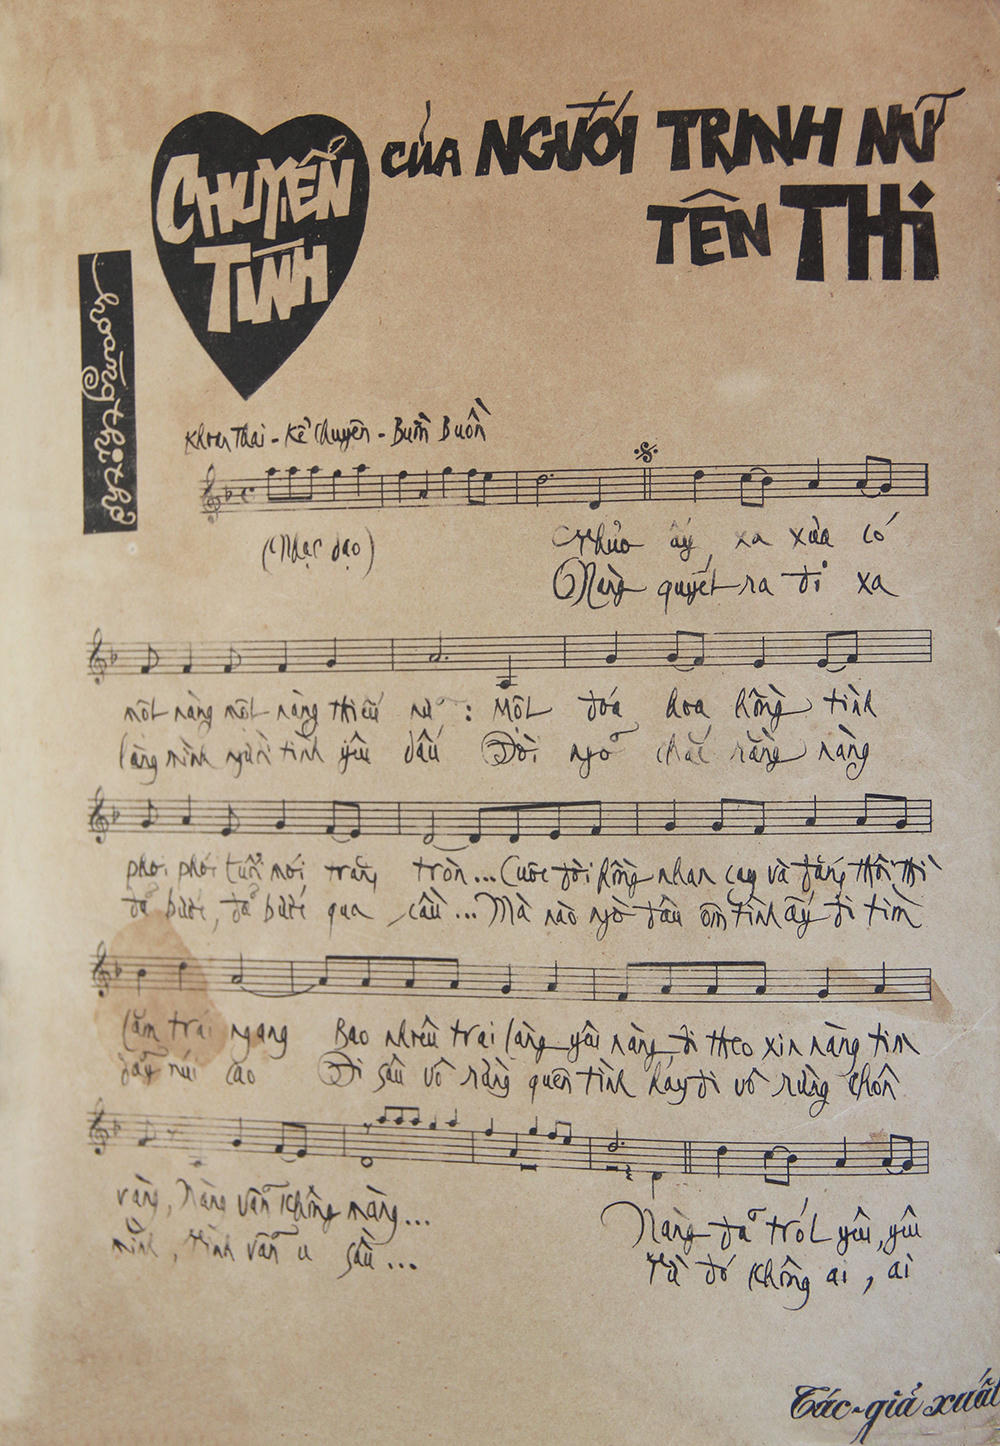 CHUYỆN TÌNH
CỦA NGƯỜI TRINH NỮ
TÊN THI
hoàng thi thơ
Khoan Thai - Kể Chuyện - Buồn Buồn
(Nhạc dạo)
Thủa ấy xa xưa có
Nàng quyết ra đi xa
một nàng một nàng thiếu nữ : Một đóa hoa hồng tình
làng mình người tình yêu dấu Đời ngỡ chắc rằng nàng
phơi phới tuổi mới trăng tròn... Cuộc đời hồng nhan cay và đắng thôi thì
đã bước, đã bước qua cầu... Mà nào ngờ đâu ôm tình ấy đi tìm
lắm trái ngang Bao nhiêu trai làng yêu nàng đi theo xin nàng tim
dãy núi cao Đi sâu vô rừng quên tình hay đi vô rừng chôn
vàng, Nàng vẫn không màng...
mình, tình vẫn u sầu...
Nàng đã trót yêu, yêu
Từ đó không ai, ai
Tác-giả xuất